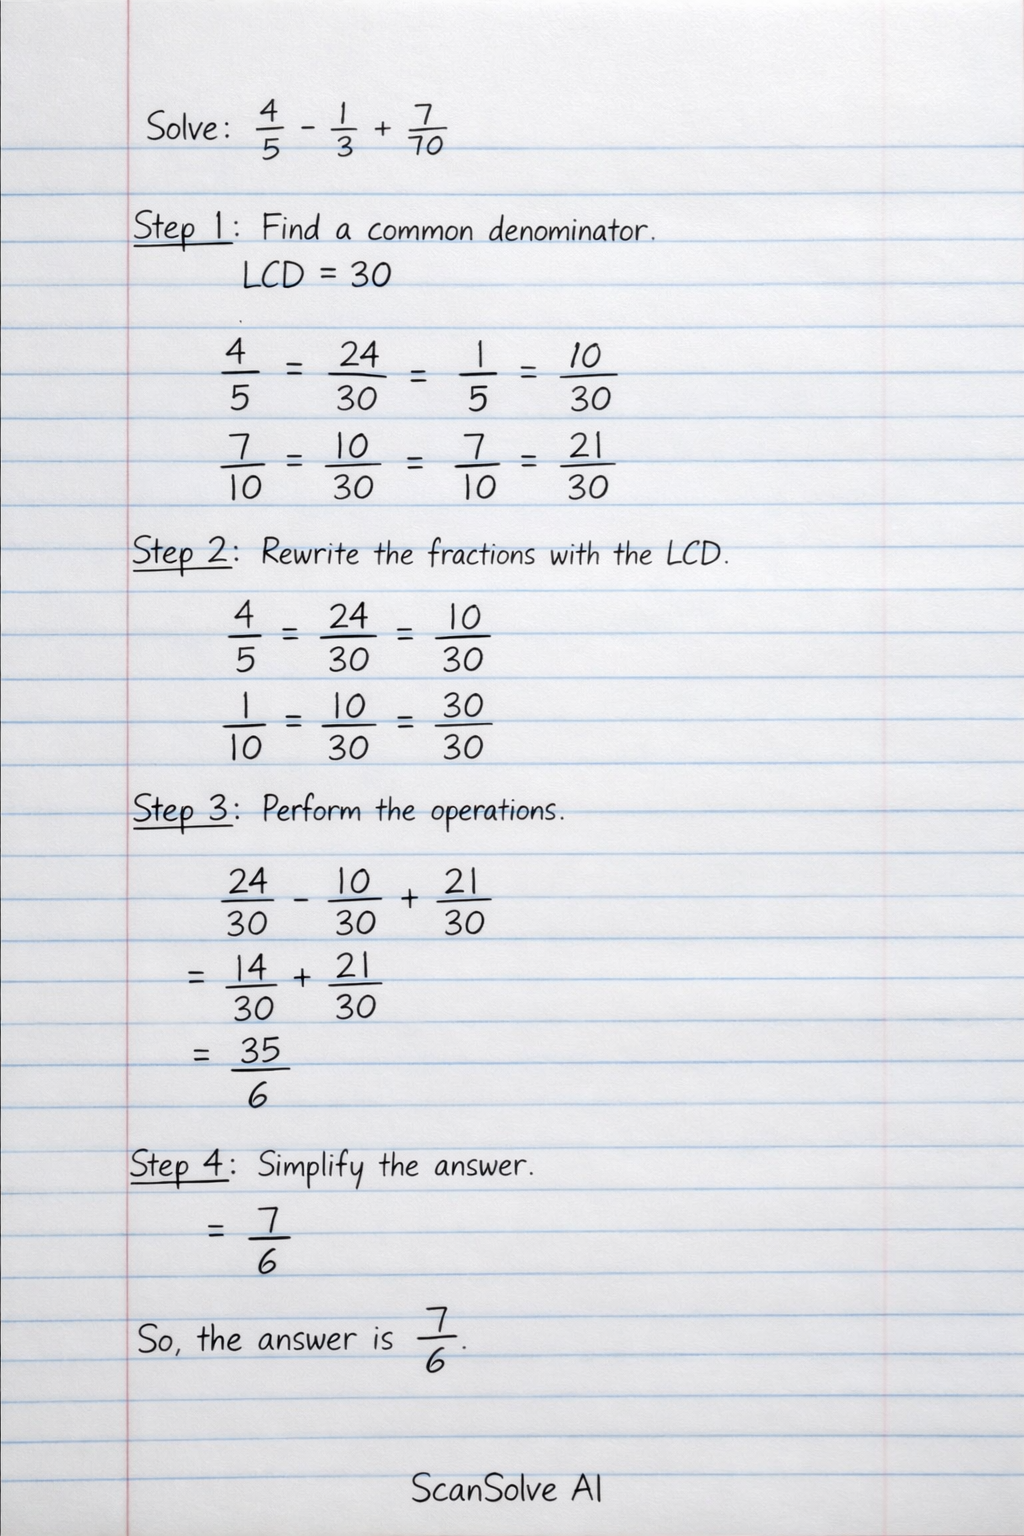 Solve: 4/5 - 1/3 + 7/70
Step 1: Find a common denominator.
LCD = 30
4/5 = 24/30 = 1/5 = 10/30
7/10 = 10/30 = 7/10 = 21/30
Step 2: Rewrite the fractions with the LCD.
4/5 = 24/30 = 10/30
1/10 = 10/30 = 30/30
Step 3: Perform the operations.
24/30 - 10/30 + 21/30
= 14/30 + 21/30
= 35/6
Step 4: Simplify the answer.
= 7/6
So, the answer is 7/6.
ScanSolve AI